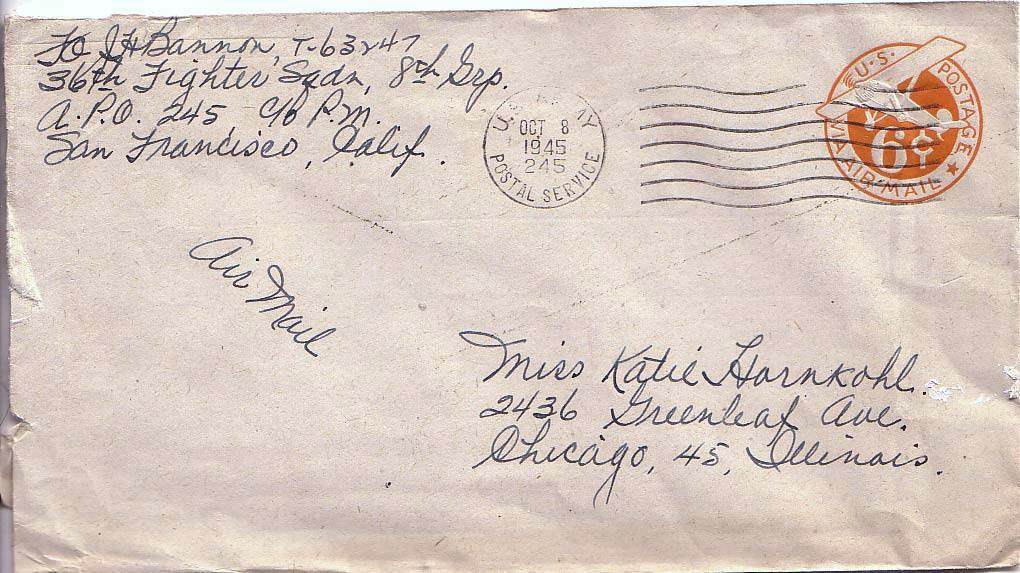 FO JH Bannon T-63247
36th Fighter Sqdn, 8th Grp.
A.P.O. 245 c/o P.M.
San Francisco, Calif.
U.S. ARMY
OCT 8
1945
245
POSTAL SERVICE
U.S. POSTAGE
6¢
VIA AIR MAIL
Air Mail
Miss Katie Hornkohl.
2436 Greenleaf Ave.
Chicago, 45, Illinois.